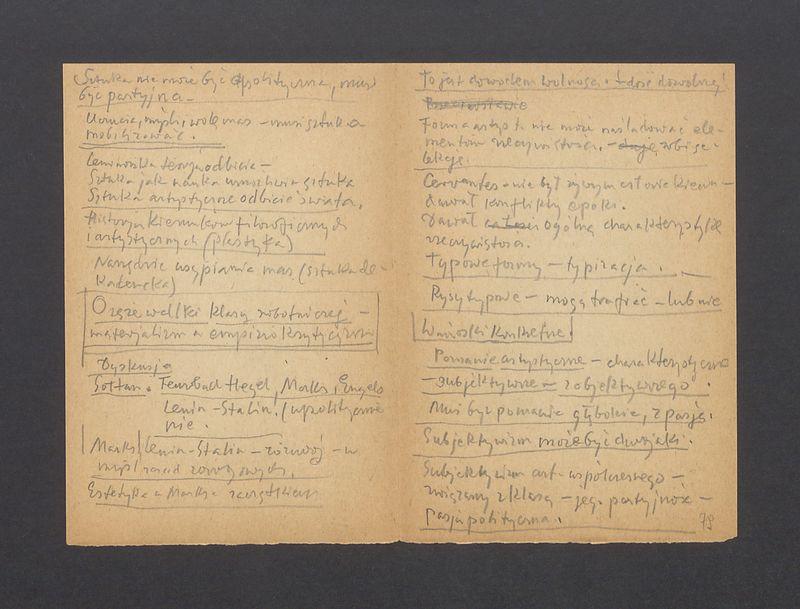 Sztuka nie może być apolityczna, musi
być partyjna –
Uczucia, myśli, wolę mas – musi sztuka
mobilizować.
Leninowska teorja odbicia –
Sztuka jak nauka sztuka
Sztuka artystyczne odbicie świata.
Historja kierunków filozoficznych
i artystycznych (plastyka)
Narzędzie usypiania mas (sztuka de-
kadencka)
Oręże walki klasy robotniczej –
materjalizm a empiriokrytycyzm
Dyskusja
Sołtan. Feuerbach Hegel, Marks, Engels
Lenin – Stalin. (upolitycznie
nie.
Marks Lenin – Stalin – rozwój – w
myśl zasad
Estetyka u Marksa
To jest dowodem wolności. dość dowolnej!
Forma artyst. nie może naśladować ele-
mentów rzeczywistości. – daje robi se-
lekcję.
Cervantes – nie był żywym człowiekiem –
dawał konflikty epoki.
Dawał ogólną charakterystykę
rzeczywistości.
Typowe formy – typizacja.
Rysy typowe – mogą trafiać – lub nie
Wnioski konkretne.
Poznanie artystyczne – charakterystyczne
– subjektywne – z objektywnego.
Musi być poznanie głębokie, z pasją.
Subjektywizm może być dwojaki.
Subjektywizm art. współczesnego –
związany z klasą – jego partyjność –
pasja polityczna.
79